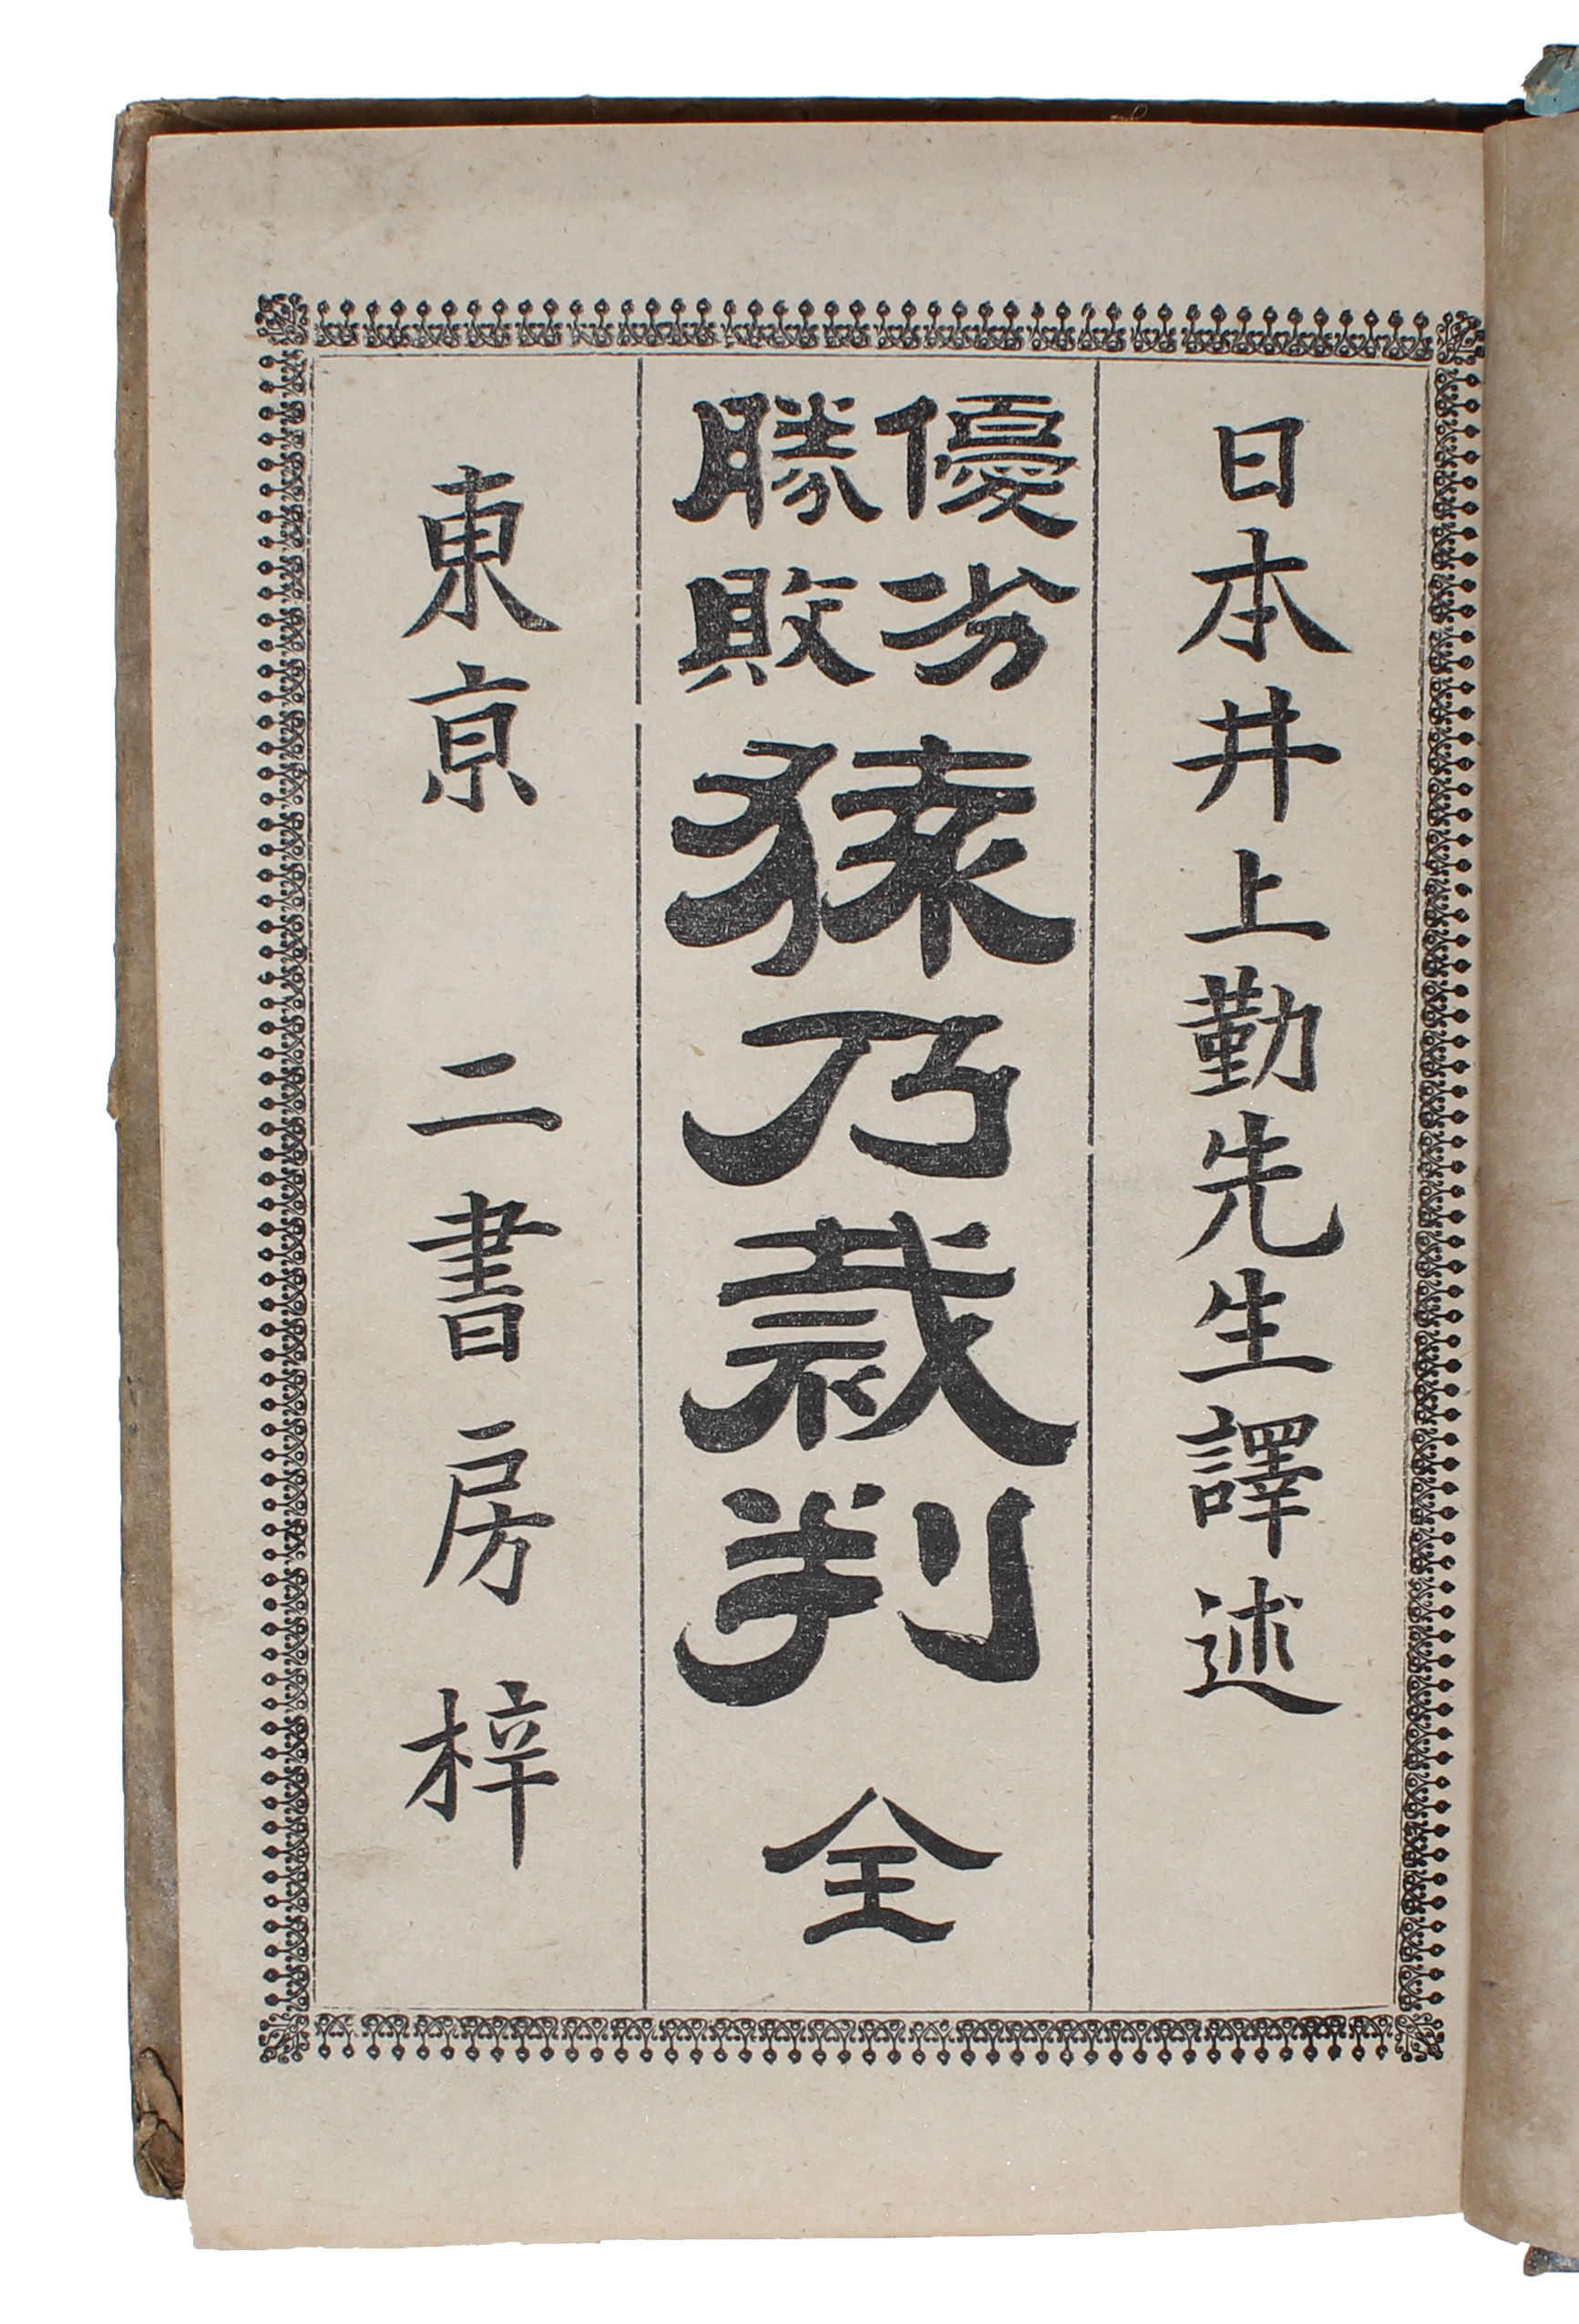 日本井上勤先生譯述
優劣
勝敗
猿乃裁判 全
東亰 二書房 梓